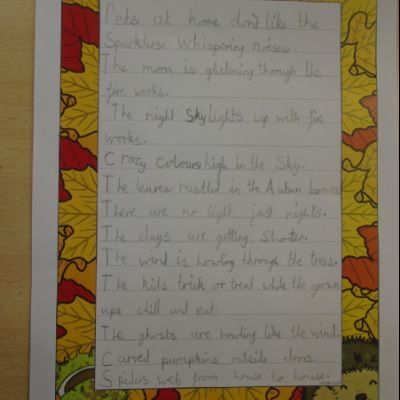 Pets at home don't like the
Sparklers Whispering noises.
The moon is glistening through the
fire works.
The night sky lights up with fire
works.
Crazy Colours high in the Sky.
The leaves rustled in the Autum breeze
There are no light just nights.
The days are getting shorter.
The wind is howling through the trees.
The kids trick or treat while the grown
ups chill and eat.
The ghosts are howling like the wind.
Carved pumpkins outside doors.
Spiders web from house to house.